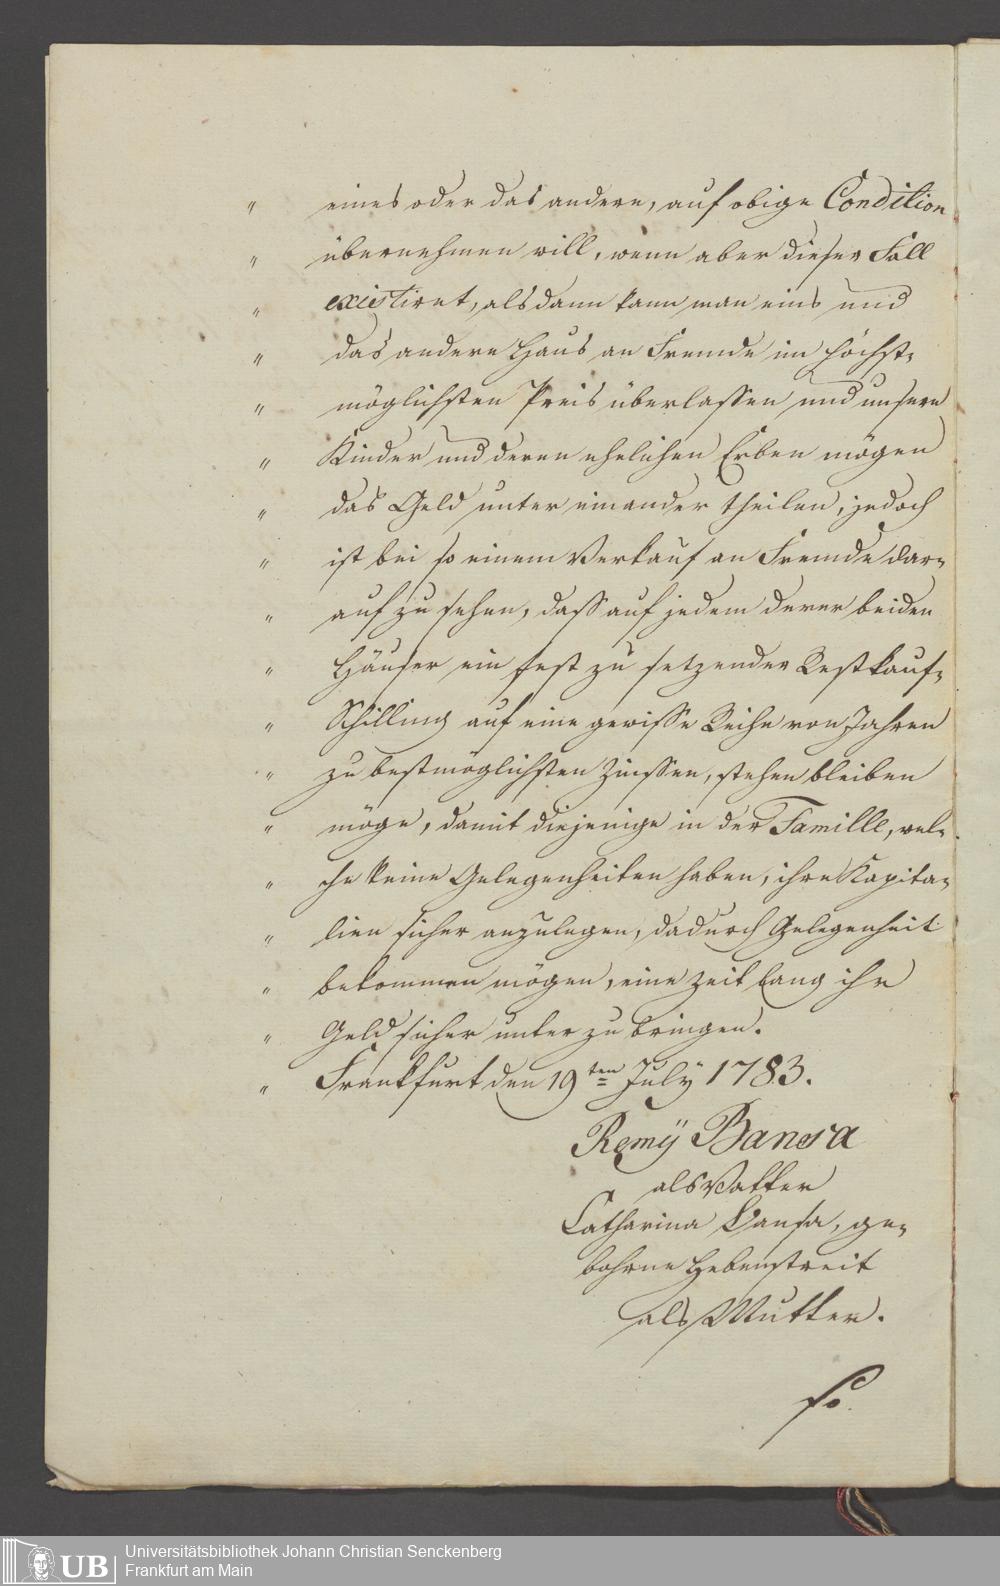 " eines oder das andere, auf obige Condition
" übernehmen will, wenn aber dieser Fall
" existiret, alsdann kann man eins und
" das andere Haus an Fremde im höchst-
" möglichsten Preis überlassen und unsere
" Kinder und deren ehelichen Erben mögen
" das Geld unter einander theilen, jedoch
" ist bei so einem Verkauf an Fremde dar-
" auf zu sehen, dass auf jedem derer beiden
" Häuser ein fest zu setzender Restkauf-
" Schilling auf eine gewisse Reihe von Jahren
" zu bestmöglichsten Zinssen, stehen bleiben
" möge, damit diejenige in der Famille, wel-
" che keine Gelegenheiten haben, ihre Kapita-
" lien sicher anzulegen, dadurch Gelegenheit
" bekommen mögen, eine Zeit lang ihr
" Geld sicher unter zu bringen.
" Frankfurt den 19ten July 1783.
Remÿ Bansa
als Vatter
Catharina Bansa, ge-
bohrne Hebenstreit
als Mutter.
So
UB Universitätsbibliothek Johann Christian Senckenberg
Frankfurt am Main